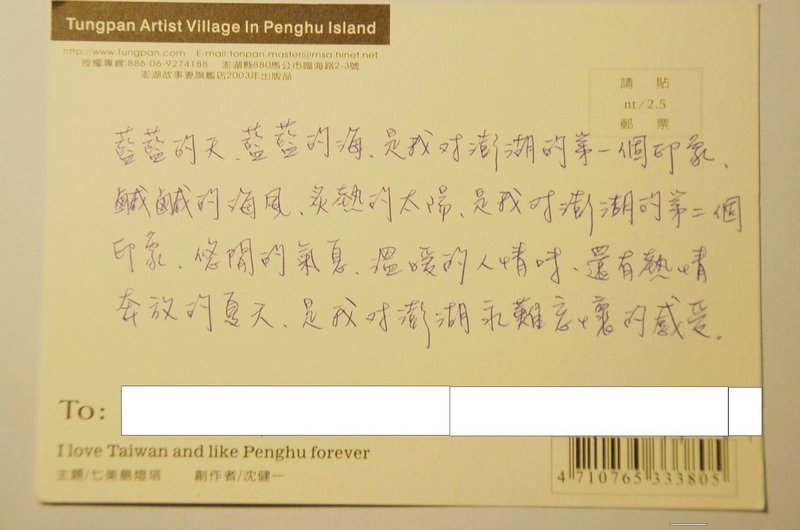 Tungpan Artist Village In Penghu Island
http://www.Tungpan.com E-mail:tonpan.master@msa.hinet.net
授權專線:886-06-9274188 澎湖縣880馬公市臨海路2-3號
澎湖故事妻旗艦店2003年出版品
請貼
nt/2.5
郵票
藍藍的天、藍藍的海、是我对澎湖的第一個印象、
鹹鹹的海風、炙熱的太陽、是我对澎湖的第二個
印象、悠閒的氣息、溫暖的人情味、還有熱情
奔放的夏天、是我对澎湖永難忘懷的感受。
To:
I love Taiwan and like Penghu forever
主題/七美島燈塔 創作者/沈健一
4 710765 333805